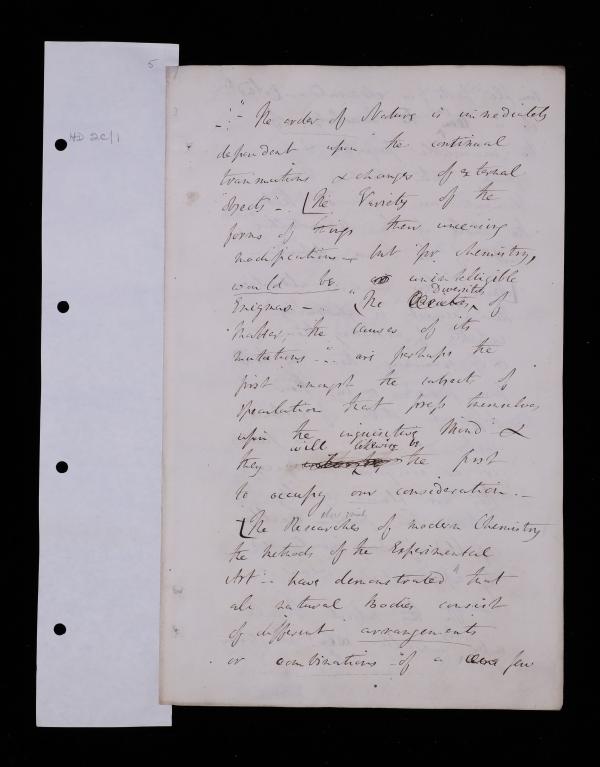 5
HD 2C/1
-:"- The order of Nature is immediately
dependent upon the continual
transmutations & changes of external
objects" -. [The Variety of the
forms of things their unceasing
modifications - but for chemistry,
would be unintelligible
Enigmas - . [The Diversity of
Matter, the causes of its
mutations ∴ are perhaps the
first amongst the subjects of
speculation that press themselves
upon the inquisitive Mind & 
they will likewise be the first
to occupy our consideration. -
[The Researches of modern Chemistry
the methods of the Experimental
Art - have demonstrated that
all natural Bodies consist
of different arrangements
or combinations of a few